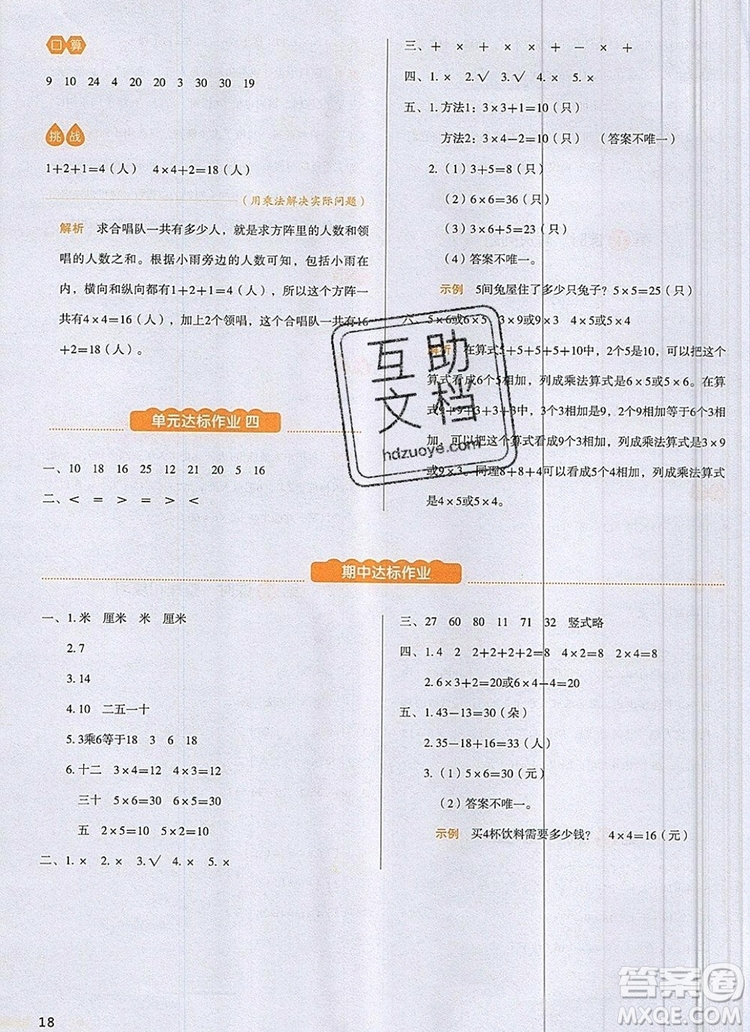 口算
9 10 24 4 20 20 3 30 30 19
挑战
1+2+1=4（人） 4×4+2=18（人）
（用乘法解决实际问题）
解析 求合唱队一共有多少人，就是求方阵里的人数和领
唱的人数之和。根据小雨旁边的人数可知，包括小雨在
内，横向和纵向都有1+2+1=4（人），所以这个方阵一
共有4×4=16（人），加上2个领唱，这个合唱队一共有16
+2=18（人）。
单元达标作业 四
一、10 18 16 25 12 21 20 5 16
二、< = > = > > < > <
三、+ + × + × - × - × +
四、1. × 2. √ 3. √ 4. × 5. ×
五、1. 方法1：3×3+1=10（只）
方法2：3×4-2=10（只） （答案不唯一）
2.（1）3+5=8（只）
（2）6×6=36（只）
（3）6×4=24（只）
（4）答案不唯一。
示例 5间兔屋住了多少只兔子？ 5×5=25（只）
六、5×6或6×5 3×9或9×3
解析 在算式5+5+5+5+10中，2个5是10，可以把这个
算式看成6个5相加，列成乘法算式是6×5或5×6。在算
式9+9+3+3+3中，
9×3。同理8+4+4+4可以把这个算式看成5个4相加，列成乘法算式
是4×5或5×4。
期中达标作业
一、1. 米 厘米 米 厘米
2. 7
3. 14
4. 10 二五一十
5. 3乘6等于18 3 6 18
6. 十二 3×4=12 4×3=12
三十 5×6=30 6×5=30
五 2×5=10 5×2=10
二、1. × 2. × 3. √ 4. × 5. ×
三、27 60 80 11 71 32 竖式略
四、1. 4 2 2+2+2+2=8 4×2=8 2×4=8
2. 6×3+2=20或6×4-4=20
五、1. 43-13=30（朵）
2. 35-18+16=33（人）
3.（1）5×6=30（元）
（2）答案不唯一。
示例 买4杯饮料需要多少钱？ 4×4=16（元）
18
互助
文档
hdzuoye.com
答案圈
MXQE.COM